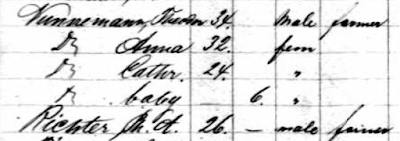 Nunnemann, Theodor 34. Male farmer
Do Anna 32. fem
Do Cathr. 24. "
Do baby — 6. "
Richter M. A. 26. — male farmer